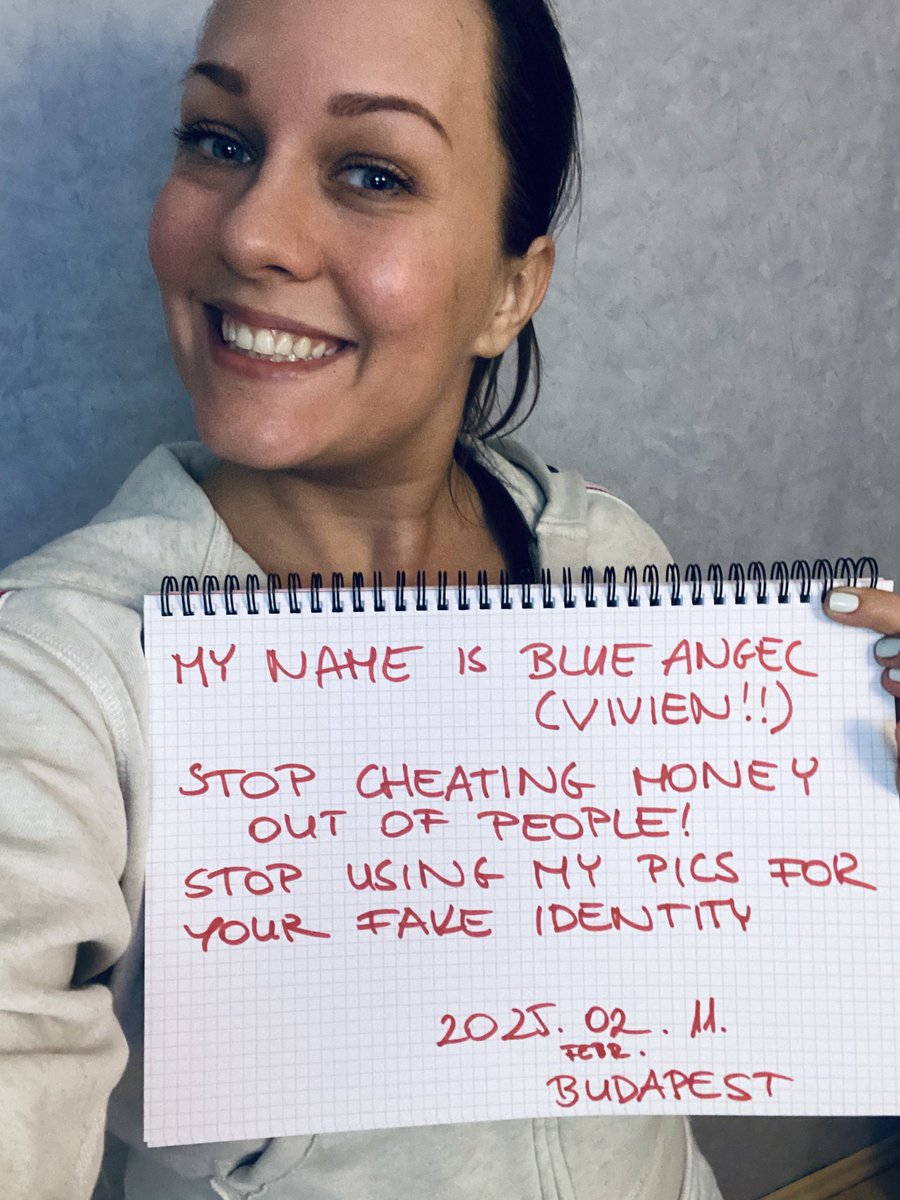 MY NAME IS BLUE ANGEL
(VIVIEN!!)
STOP CHEATING MONEY
OUT OF PEOPLE!
STOP USING MY PICS FOR
YOUR FAKE IDENTITY
2025. 02. 11.
FEBR.
BUDAPEST